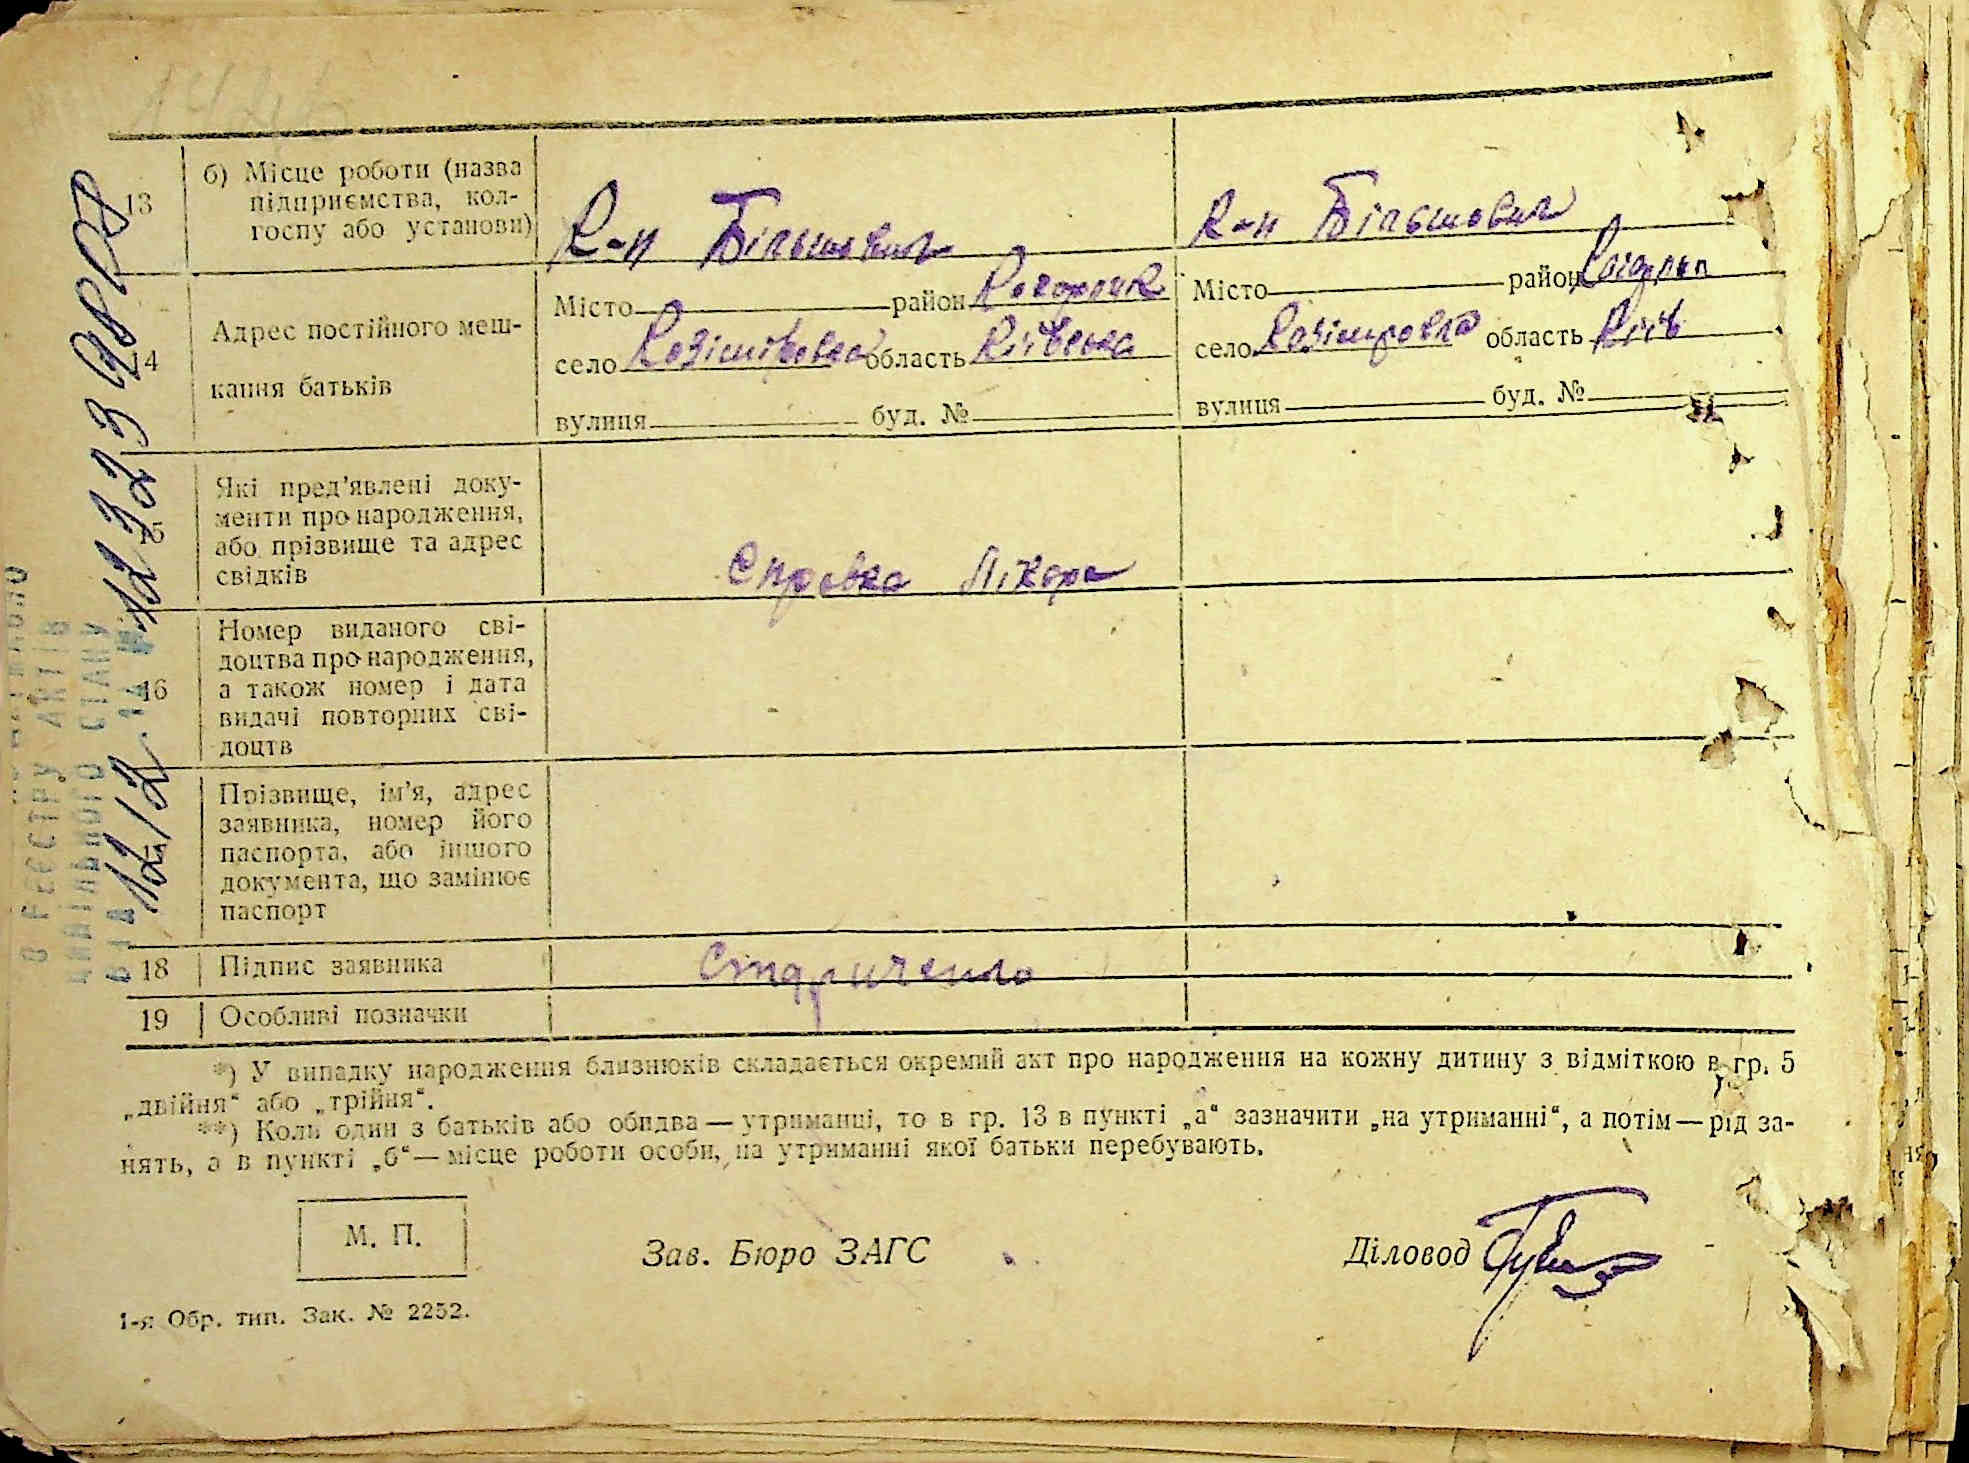 13
б) Місце роботи (назва
підприємства, кол-
госпу або установи)
К-п Більшовик
К-п Більшовик
14
Адрес постійного меш-
кання батьків
Місто район Кагарлик
село Казіміровка область Київська
вулиця буд. №
Місто район
село Казіміровка область Київ
вулиця буд. №
15
Які пред'явлені доку-
менти про народження,
або прізвище та адрес
свідків
Справка Лікаря
16
Номер виданого сві-
доцтва про народження,
а також номер і дата
видачі повторних сві-
доцтв
Прізвище, ім'я, адрес
заявника, номер його
паспорта, або іншого
документа, що замінює
паспорт
18 Підпис заявника
19 Особливі позначки
*) У випадку народження близнюків складається окремий акт про народження на кожну дитину з відміткою в гр. 5
„двійня“ або „трійня“.
**) Коли один з батьків або обидва — утриманці, то в гр. 13 в пункті „а“ зазначити „на утриманні“, а потім — рід за-
нять, а в пункті „б“ — місце роботи особи, на утриманні якої батьки перебувають.
М. П.
Зав. Бюро ЗАГС
Діловод
1-я Обр. тип. Зак. № 2252.
В РЕЄСТРУ АКТІВ
ЦИВІЛЬНОГО СТАНУ
ВІД 12/2